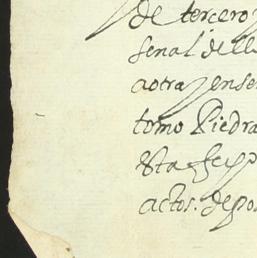 de tercero
señal de
aotra y en se
tomo Piedra
esta fe y
actos. de pos